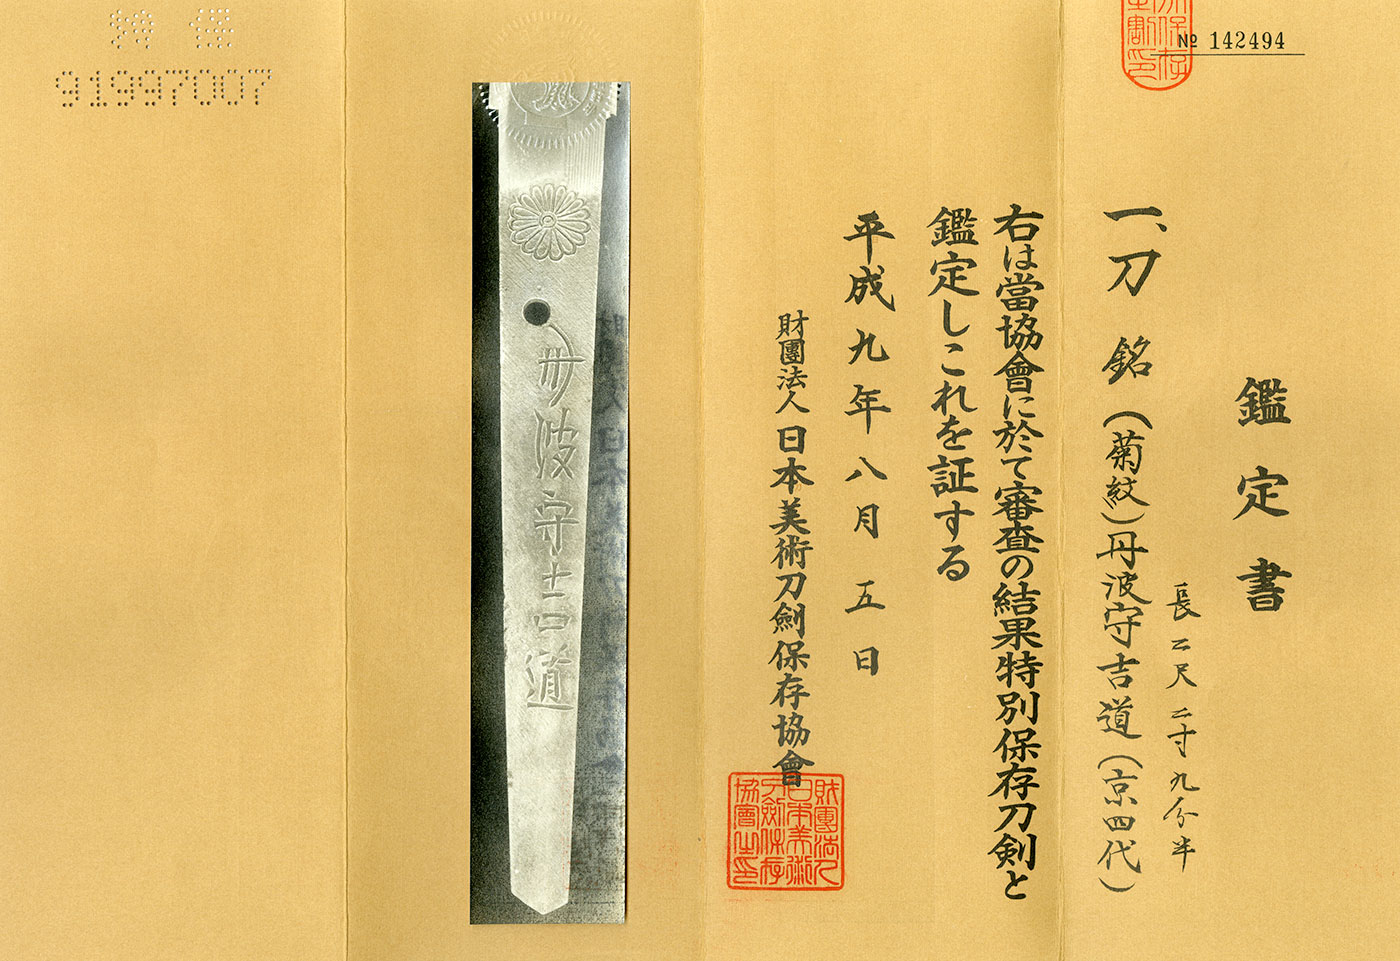 № 142494
鑑定書
一、刀 銘（菊紋）丹波守吉道（京四代）
長二尺二寸九分半
右は當協會に於て審査の結果特別保存刀剣と
鑑定しこれを証する
平成九年八月五日
財團法人日本美術刀劍保存協會
財團法人
日本美術
刀劍保存
協會之印
丹波守吉道
特保
91997007